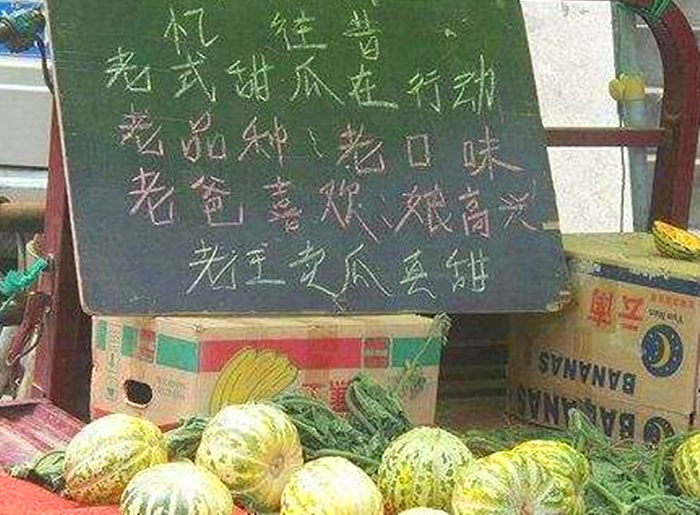 忆往昔
老式甜瓜在行动
老品种、老口味
老爸喜欢、娘高兴
老王卖瓜真甜
BANANAS
BANANAS